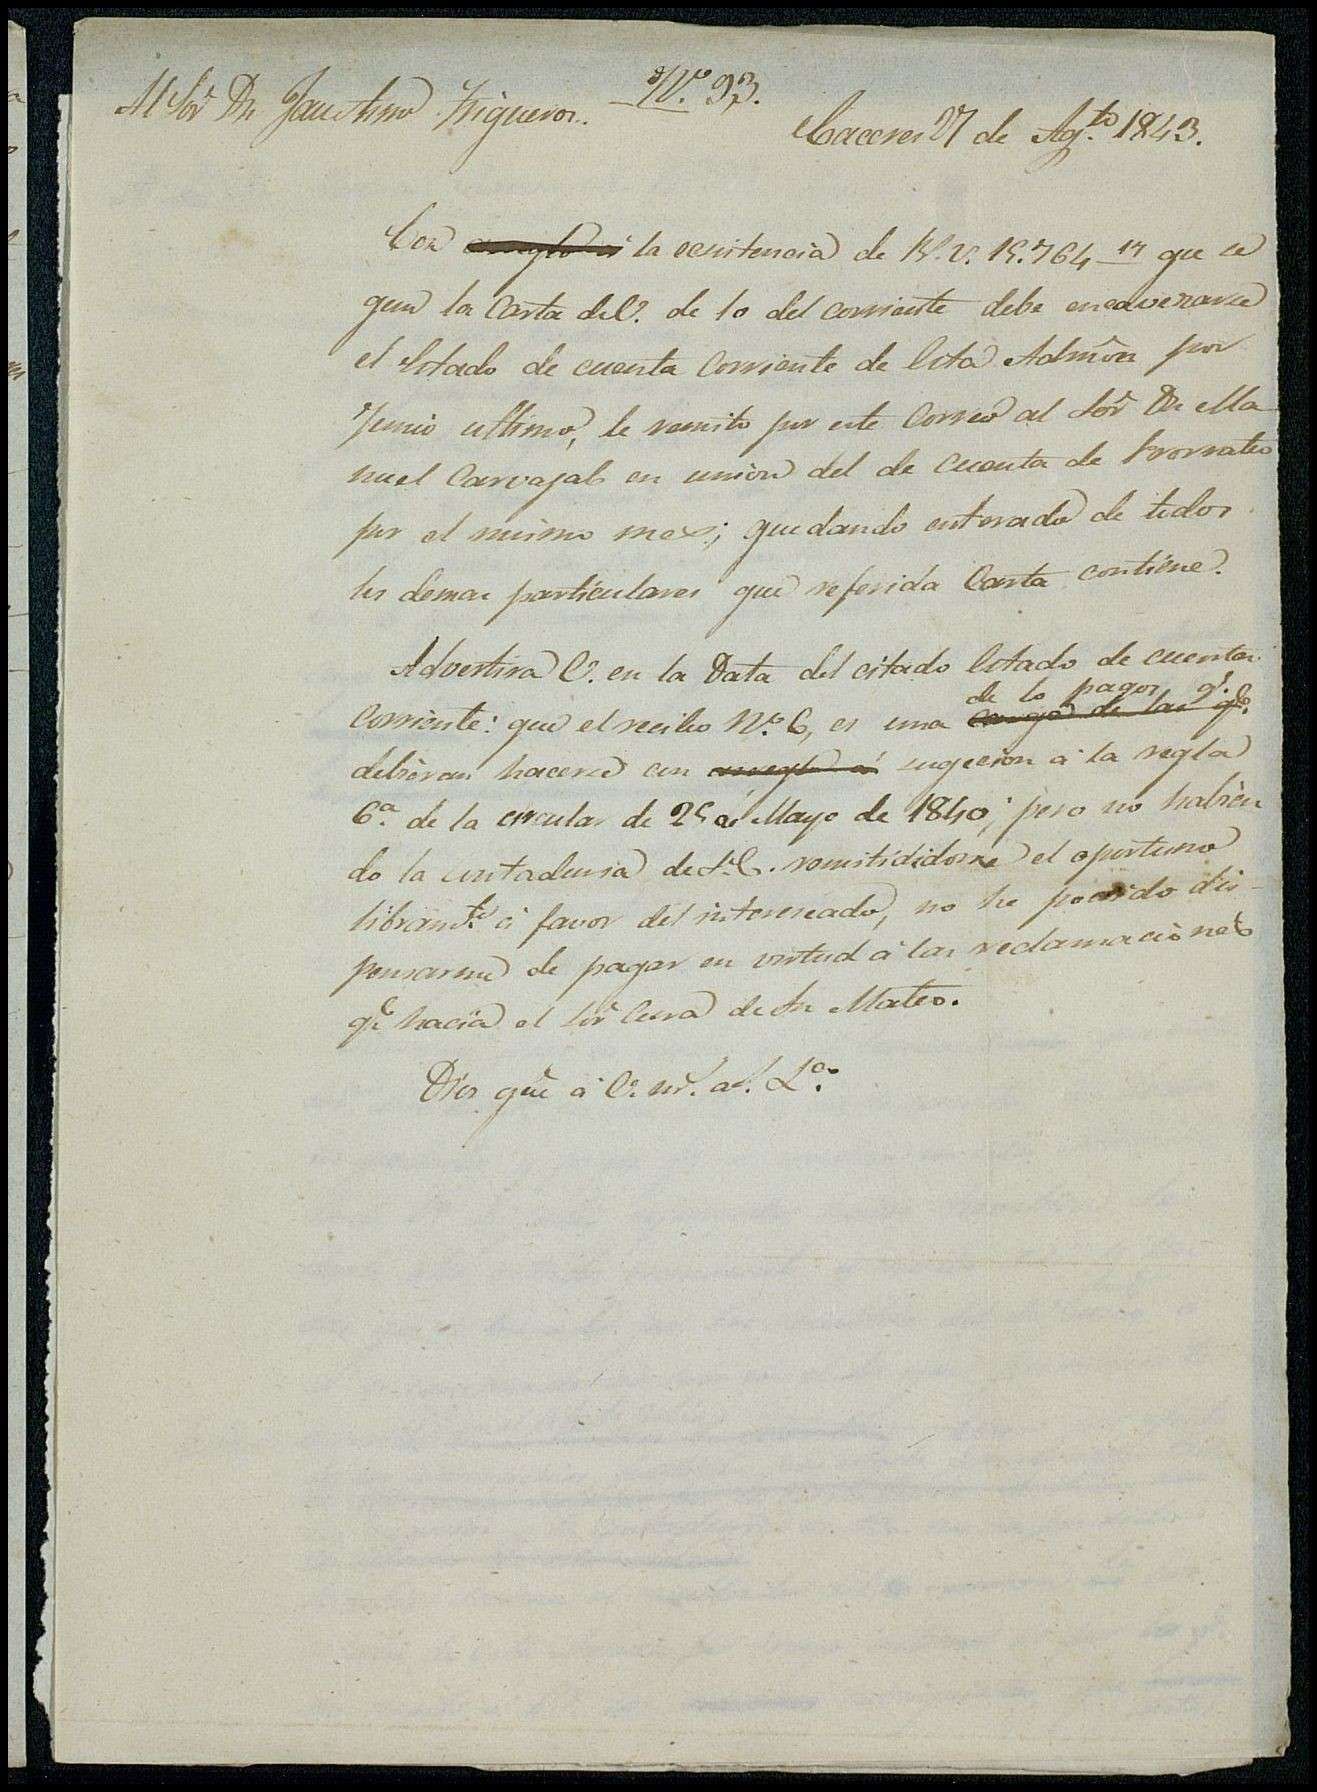 Al Sor. Dn Faustino Trigueros.
N.º 93.
Caceres 27 de Ag.to 1843.
Con arreglo á la ecsistencia de R.V. 15.764 17 que se
gun la Carta de V. de 10 del corriente debe encavezarse
el Estado de cuenta Corriente de esta Admon por
Junio ultimo, le remito por este Correo al Sor. Dn Ma
nuel Carvajal en union del de Cuenta de Prorrateo
por el mismo mes; quedando enterado de todos
los demas particulares que referida Carta contiene.
Advertira V. en la Data del citado Estado de cuenta
de lo pagos q.e
Corriente: que el recibo N.º 6, es una carga de las q.e
debieran hacerse con arreglo á sugecion á la regla
6.a de la circular de 25 de Mayo de 1840; pero no habien
do la contaduria de S.E. remitididome el oportuno
libram.to á favor del interesado, no he podido dis-
pensarme de pagar en virtud á las reclamaciones
q.e hacia el Sor. Cura de Sn Mateo.
Dios gue á V. m.s a.s La